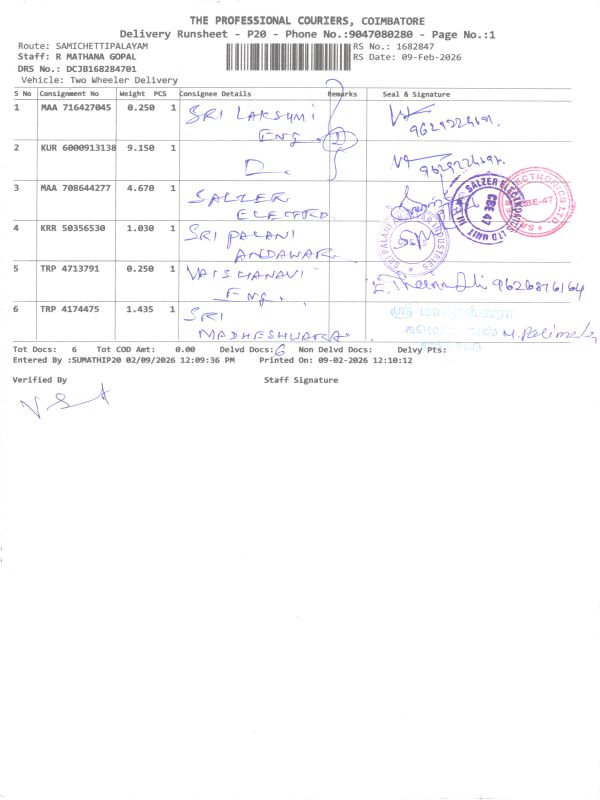 THE PROFESSIONAL COURIERS, COIMBATORE
Delivery Runsheet - P20 - Phone No.:9047080280 - Page No.:1
Route: SAMICHETTIPALAYAM
RS No.: 1682847
Staff: R MATHANA GOPAL
RS Date: 09-Feb-2026
DRS No.: DCJB168284701
Vehicle: Two Wheeler Delivery
S No Consignment No Weight PCS Consignee Details Remarks Seal & Signature
1 MAA 716427045 0.250 1 SRI LAKSHMI
ENG.
2 KUR 6000913138 9.150 1
D.
3 MAA 708644277 4.670 1 SALZER
ELECTRO.
4 KRR 50356530 1.030 1 SRI PALANI
ANDAWAR
5 TRP 4713791 0.250 1 VAISHANAVI
ENG. 9626876164
6 TRP 4174475 1.435 1 SRI
MADHESHWARA
Tot Docs: 6 Tot COD Amt: 0.00 Delvd Docs: 6 Non Delvd Docs: Delvy Pts:
Entered By :SUMATHIP20 02/09/2026 12:09:36 PM Printed On: 09-02-2026 12:10:12
Verified By Staff Signature